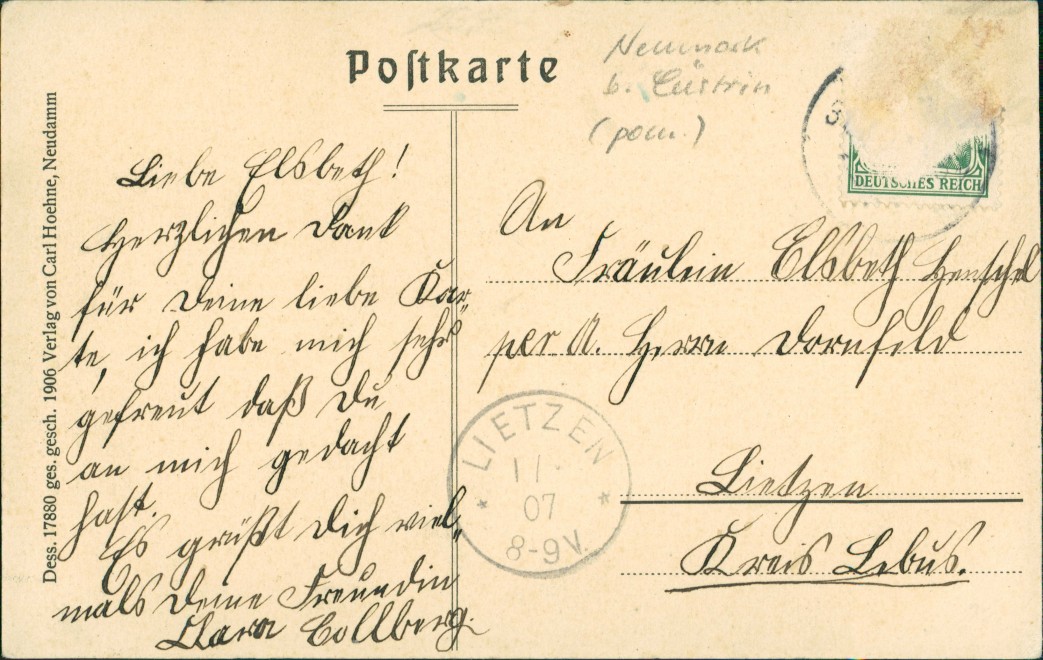 Postkarte
Neumark
b. Cüstrin
(pom.)
Dess. 17880 ges. gesch. 1906 Verlag von Carl Hoehne, Neudamm
Liebe Elsbeth!
Herzlichen Dank
für Deine liebe Kar-
te, ich habe mich sehr
gefreut daß Du
an mich gedacht
hast.
Es grüßt Dich viel-
mals Deine Freundin
Clara Collberg.
DEUTSCHES REICH
An
Fräulein Elsbeth Henschel
per A. Herrn Dornfeld
Lietzen
Kreis Lebus.
LIETZEN
11
07
8-9V.